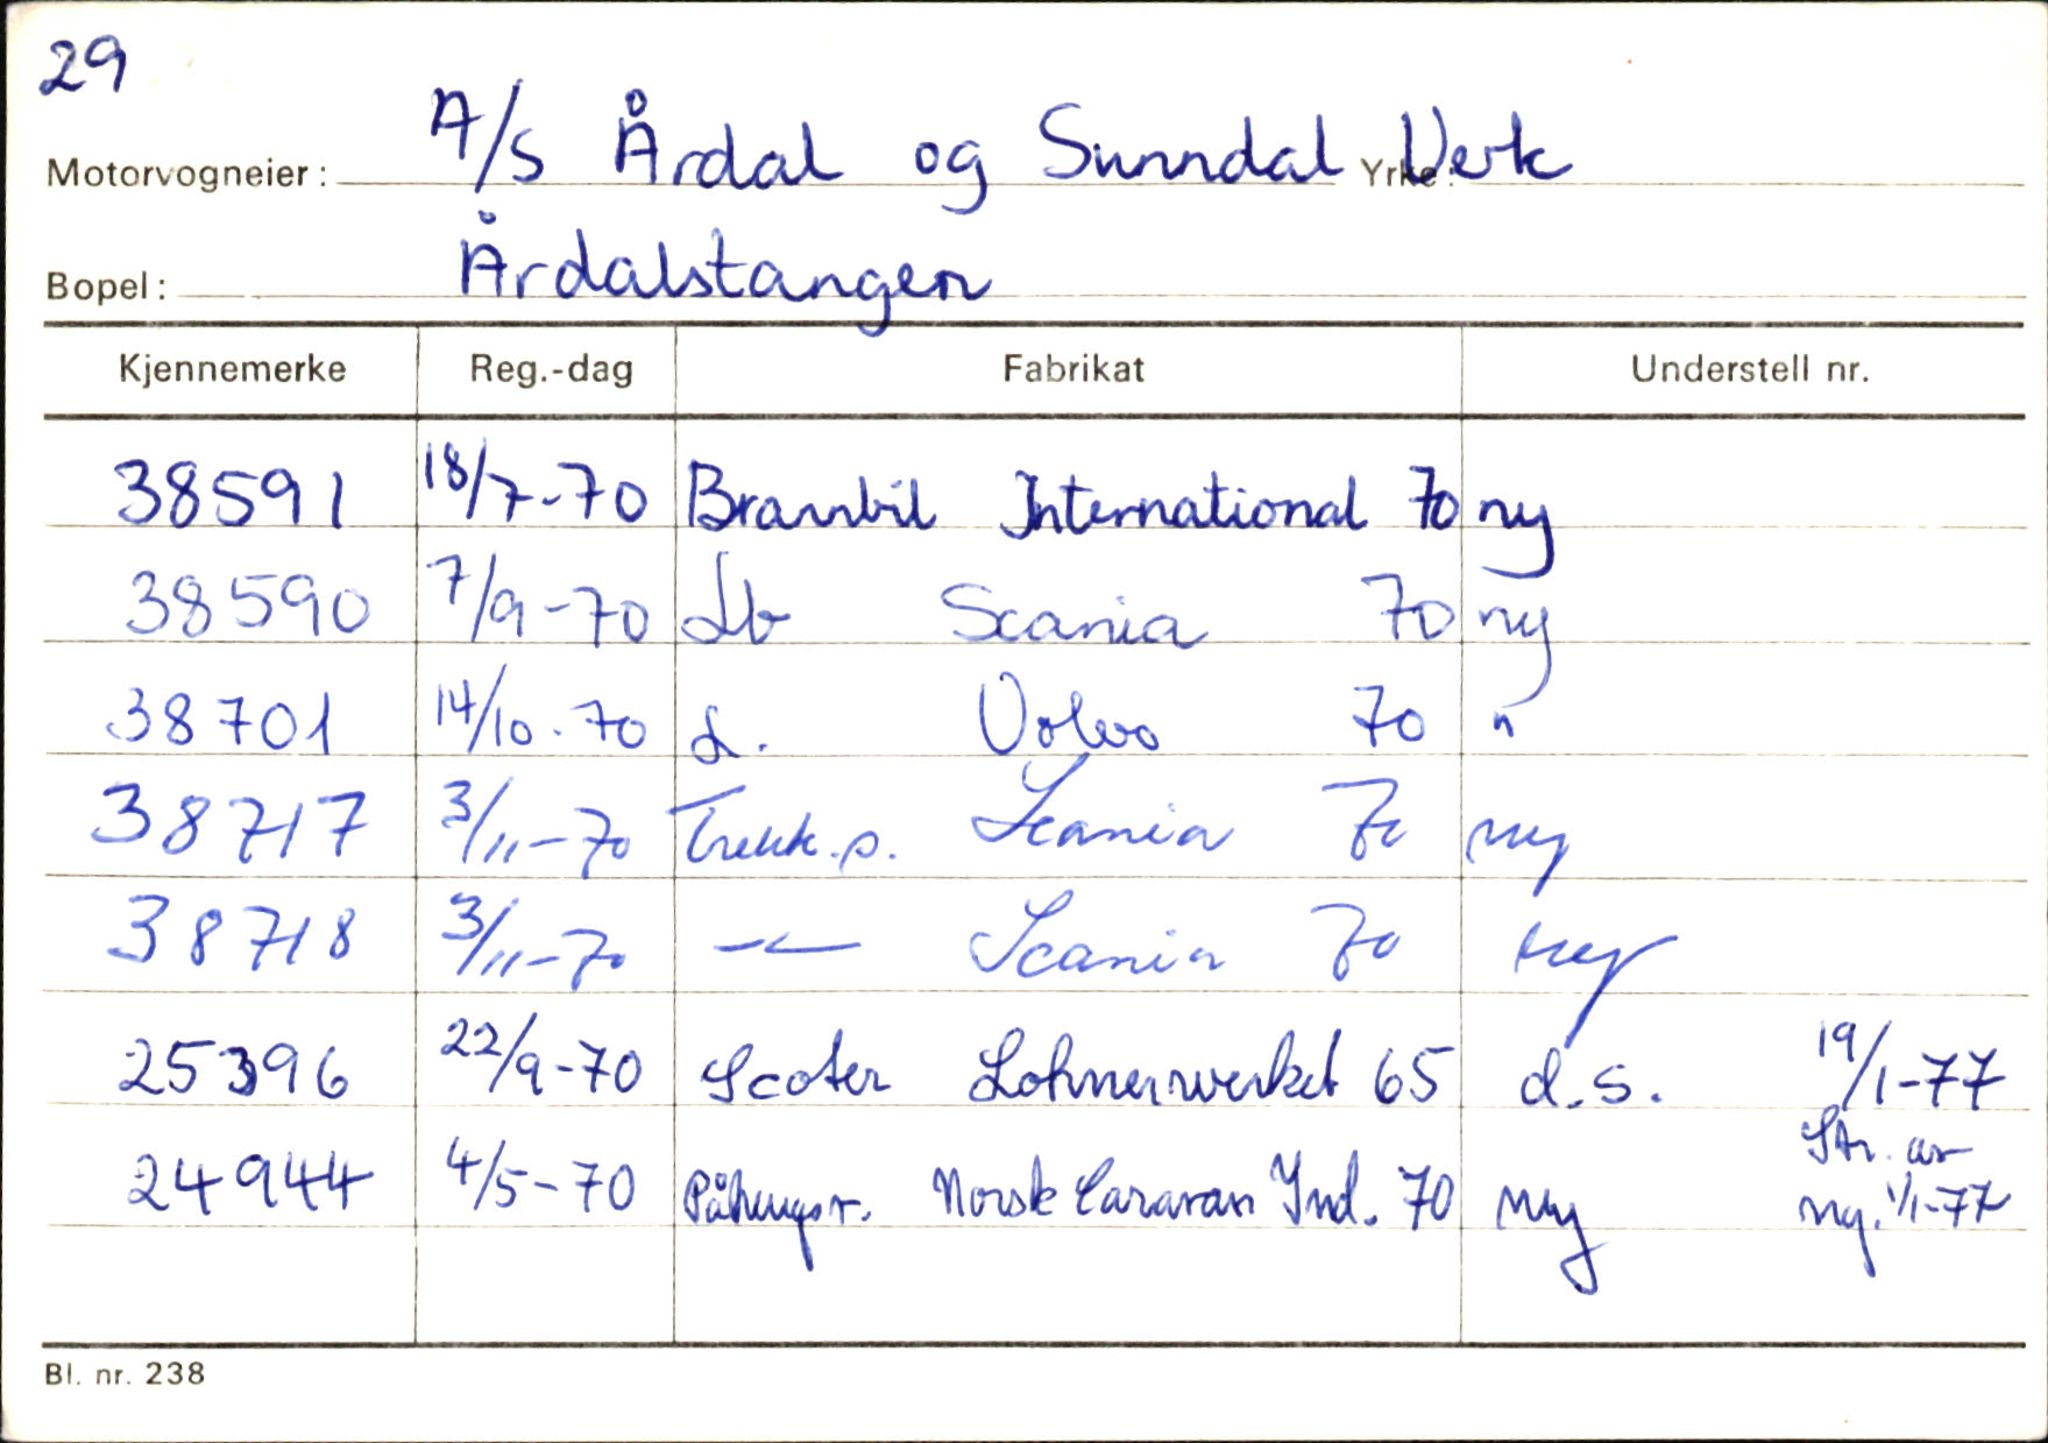 29
Motorvogneier: A/S Årdal og Sunndal Verk Yrke:
Bopel: Årdalstangen
Kjennemerke Reg.-dag Fabrikat Understell nr.
38591 18/7-70 Brannbil International 70 ny
38590 7/9-70 Lb Scania 70 ny
38701 14/10-70 L. Volvo 70 "
38717 3/11-70 Trekk.p. Scania 70 ny
38718 3/11-70 — " — Scania 70 ny
25396 22/9-70 Scoter Lohnerwerket 65 d.s. 19/1-77
24944 4/5-70 Påhengsv. Norsk Caravan Ind. 70 ny Str. av ny. 1/1-77
Bl. nr. 238